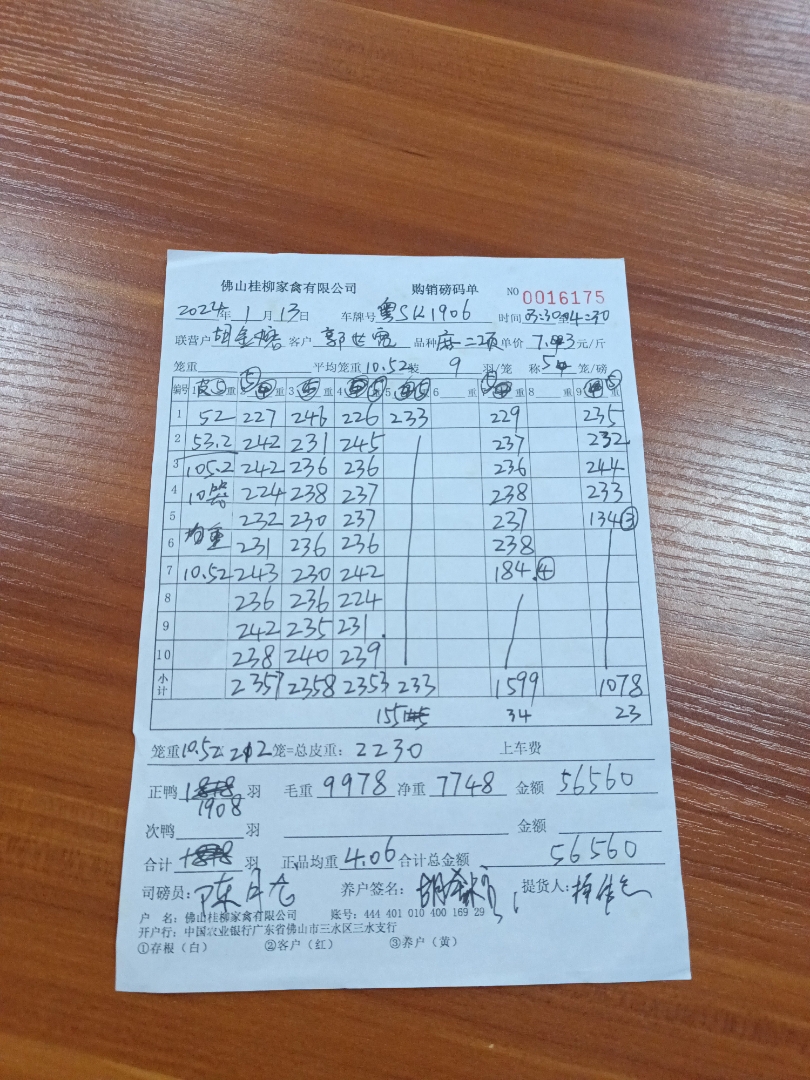 佛山桂柳家禽有限公司 购销磅码单 NO 0016175
2024年 1 月 13 日 车牌号 粤SK1906 时间 3:30至4:30
联营户 胡金 客户 郭世 品种 麻二项 单价 7.3 元/斤
笼重 平均笼重 10.52 装 9 羽/笼 称 5 笼/磅
编号 1 皮⑤重 2 ⑤重 3 ⑤重 4 ⑤重 5 ⑤重 6 重 7 ⑤重 8 重 9 ⑤重
1 52 227 246 226 233 229 235
2 53.2 242 231 245 237 232
3 105.2 242 236 236 236 244
4 10笼 224 238 237 238 233
5 232 230 237 237 134③
6 均重 231 236 236 238
7 10.52 243 230 242 184.④
8 236 236 224
9 242 235 231.
10 238 240 239
小计 2357 2358 2353 233 1599 1078
155 34 23
笼重 10.52×212 笼=总皮重: 2230 上车费
正鸭 羽 毛重 9978 净重 7748 金额 56560
1908
次鸭 羽 金额
合计 羽 正品均重 4.06 合计总金额 56560
司磅员: 陈 养户签名: 胡 提货人:
户 名: 佛山桂柳家禽有限公司 账号: 444 401 010 400 169 29
开户行: 中国农业银行广东省佛山市三水区三水支行
①存根(白) ②客户(红) ③养户(黄)